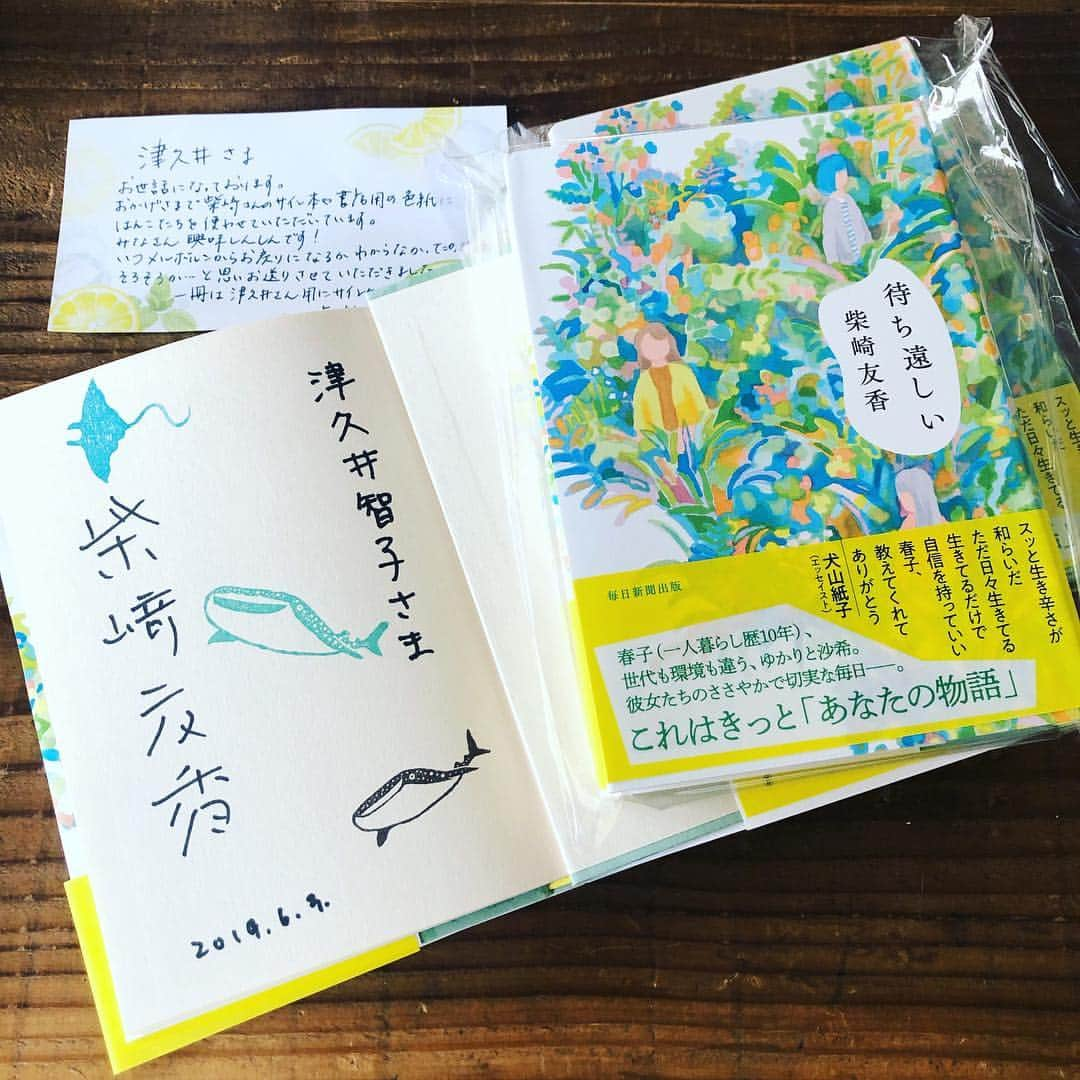 津久井さま
お世話になっております。
おかげさまで柴崎さんのサイン本や書店用の色紙に
はんこたちを使わせていただいています。
みなさん興味しんしんです!
いつメルボルンからお戻りになるかわからなかったので、
そろそろか…と思いお送りさせていただきました
一冊は津久井さん用にサイン
津久井智子さま
柴﨑友香
2019.6.
待ち遠しい
柴崎友香
スッと生き辛さが
和らいだ
ただ日々生きてる
生きてるだけで
自信を持っていい
春子、
教えてくれて
ありがとう
犬山紙子
(エッセイスト)
毎日新聞出版
春子(一人暮らし歴10年)、
世代も環境も違う、ゆかりと沙希。
彼女たちのささやかで切実な毎日──。
これはきっと「あなたの物語」
スッと生き
和らいだ
ただ日々生きてる